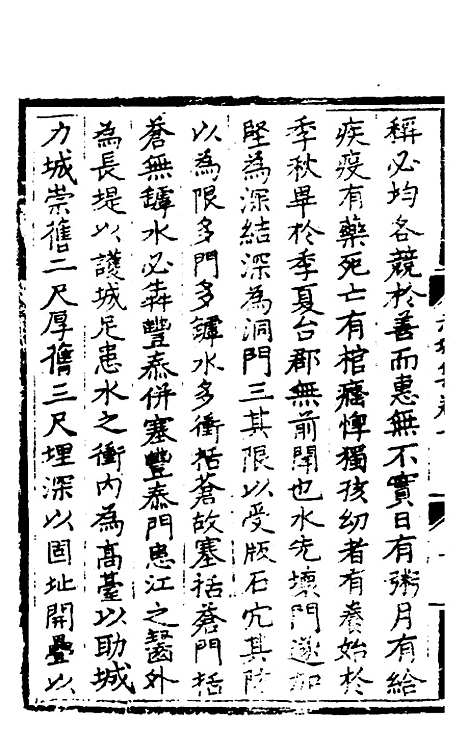 稱必均各競於善而惠無不實日有粥月有給
疾疫有藥死亡有棺癃惸獨孩幼者有養始於
季秋畢於季夏台郡無前聞也水先壞門遂加
堅為深結深為洞門三其限以受版石穴其
以為限多門多罅水多衝括蒼故塞括蒼門括
蒼無罅水必犇豐泰併塞豐泰門患江之齧外
為長堤以護城足患水之衝內為高臺以助城
力城崇舊二尺厚舊三尺埋深以固址開疊以